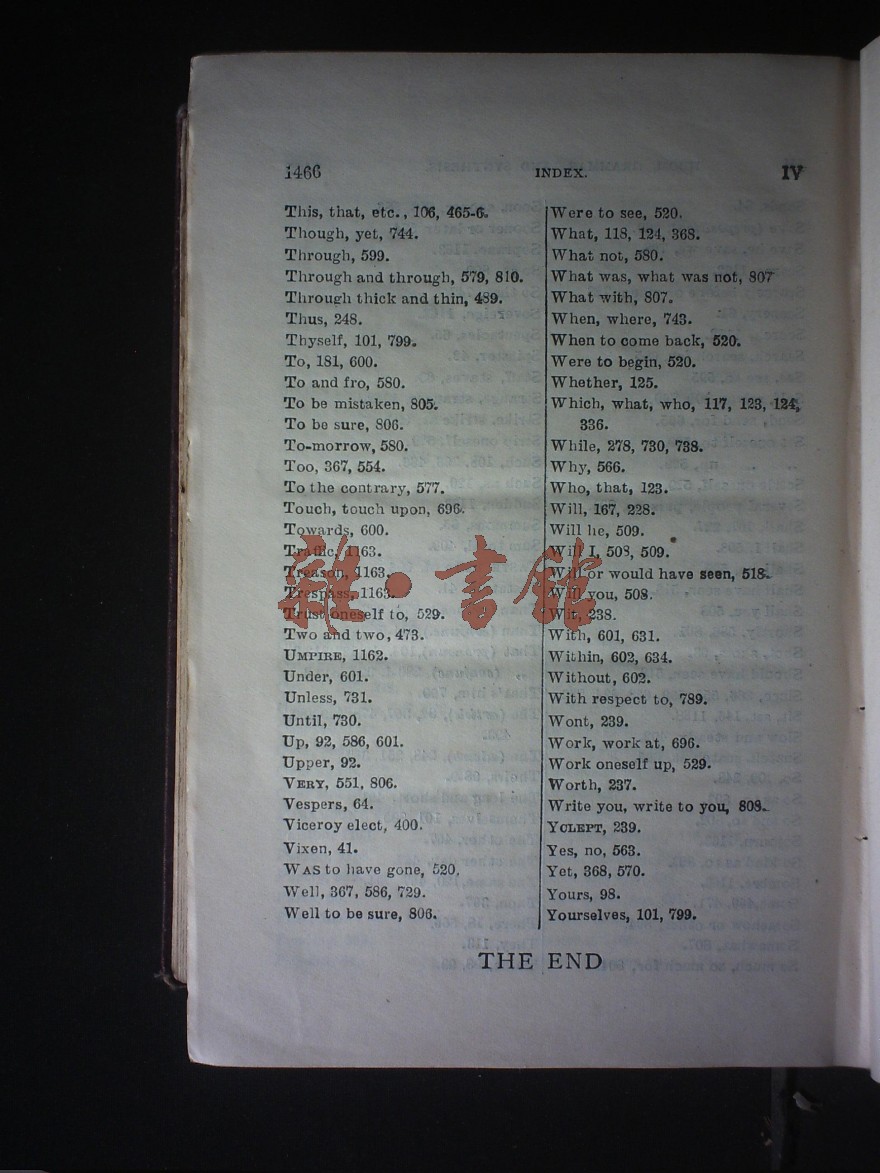 1466 INDEX. IV
This, that, etc., 106, 465-6.
Though, yet, 744.
Through, 599.
Through and through, 579, 810.
Through thick and thin, 489.
Thus, 248.
Thyself, 101, 799.
To, 181, 600.
To and fro, 580.
To be mistaken, 805.
To be sure, 806.
To-morrow, 580.
Too, 367, 554.
To the contrary, 577.
Touch, touch upon, 696.
Towards, 600.
Traffic, 1163.
Treason, 1163.
Trespass, 1163.
Trust oneself to, 529.
Two and two, 473.
UMPIRE, 1162.
Under, 601.
Unless, 731.
Until, 730.
Up, 92, 586, 601.
Upper, 92.
VERY, 551, 806.
Vespers, 64.
Viceroy elect, 400.
Vixen, 41.
WAS to have gone, 520.
Well, 367, 586, 729.
Well to be sure, 806.
Were to see, 520.
What, 118, 124, 368.
What not, 580.
What was, what was not, 807
What with, 807.
When, where, 743.
When to come back, 520.
Were to begin, 520.
Whether, 125.
Which, what, who, 117, 123, 124,
336.
While, 278, 730, 738.
Why, 566.
Who, that, 123.
Will, 167, 228.
Will he, 509.
Will I, 508, 509.
Will or would have seen, 518.
Will you, 508.
Wit, 238.
With, 601, 631.
Within, 602, 634.
Without, 602.
With respect to, 789.
Wont, 239.
Work, work at, 696.
Work oneself up, 529.
Worth, 237.
Write you, write to you, 808.
YCLEPT, 239.
Yes, no, 563.
Yet, 368, 570.
Yours, 98.
Yourselves, 101, 799.
THE END
雜·書館